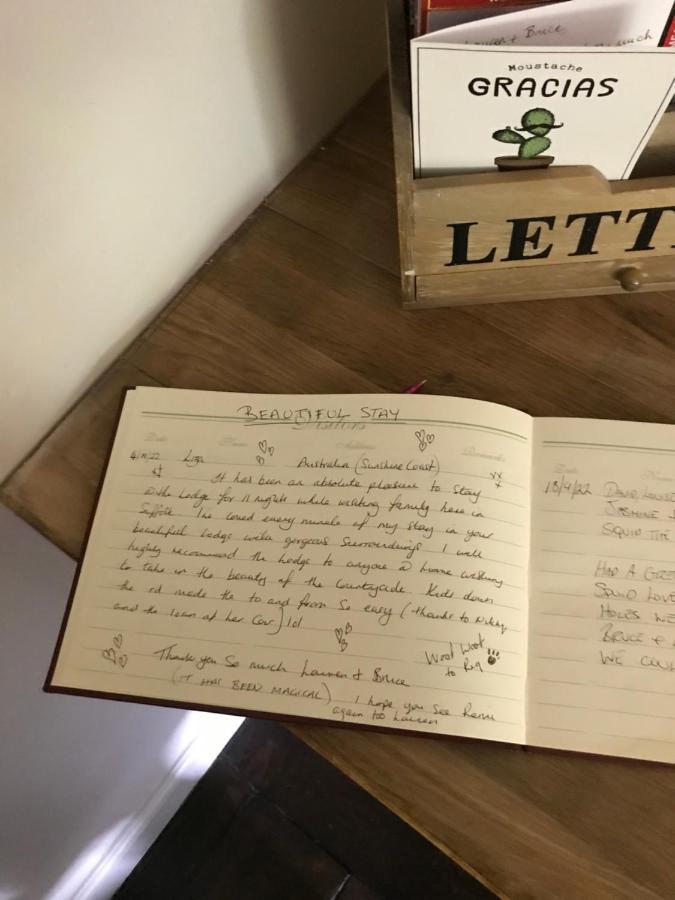 Lauren & Bruce,
much
Moustache
GRACIAS
LETT
BEAUTIFUL STAY
Visitors
Date Name Address Remarks
Liza Australia (Sunshine Coast)
xx
x
It has been an absolute pleasure to stay
@ the Lodge for 11 nights while visiting family here in
Suffolk I've loved every minute of my stay in your
beautiful Lodge with gorgeous surroundings I will
highly recommend the Lodge to anyone @ home wishing
to take in the beauty of the Countryside Kids down
the rd made the to and from so easy (thanks to Nikky
and the loan of her Car) lol
Thank you So much Lauren & Bruce
(IT HAS BEEN MAGICAL) I hope you see
again too Lauren
Woof Woof
to
Date Name
18/9/22 DAVID
JASMINE
SQUID
HAD A
SQUID LOVE
HOLES WE
BRUCE &
WE COUL